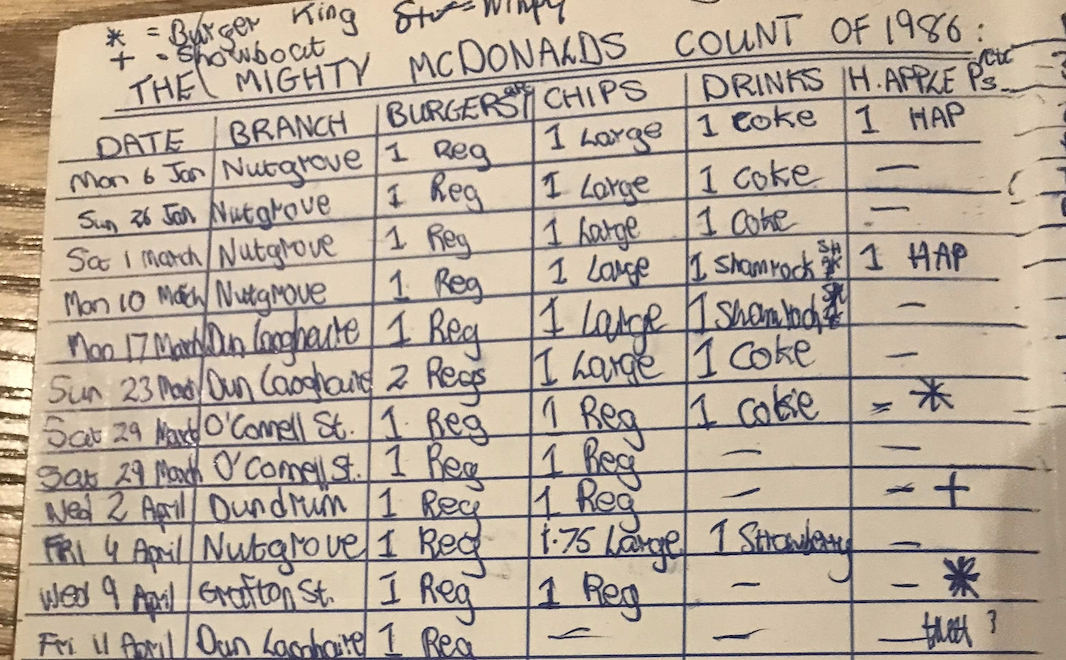 * = Burger King = Wimpy
+ = Showboat
THE MIGHTY MCDONALDS COUNT OF 1986:
DATE BRANCH BURGERS etc CHIPS DRINKS H. APPLE Ps. etc
Mon 6 Jan Nutgrove 1 Reg 1 Large 1 Coke 1 HAP
Sun 26 Jan Nutgrove 1 Reg 1 Large 1 Coke —
Sat 1 March Nutgrove 1 Reg 1 Large 1 Coke —
Mon 10 March Nutgrove 1 Reg 1 Large 1 Shamrock SH 1 HAP
Mon 17 March Dun Laoghaire 1 Reg 1 Large 1 Shamrock —
Sun 23 March Dun Laoghaire 2 Regs 1 Large 1 Coke —
Sat 29 March O'Connell St. 1 Reg 1 Reg 1 Coke - *
Sat 29 March O'Connell St. 1 Reg 1 Reg — —
Wed 2 April Dundrum 1 Reg 1 Reg — - +
FRI 4 April Nutgrove 1 Reg 1.75 Large 1 Strawberry —
Wed 9 April Grafton St. 1 Reg 1 Reg — - *
Fri 11 April Dun Laoghaire 1 Reg — — —